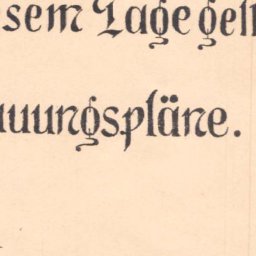 sem Lage gel
uungspläne.